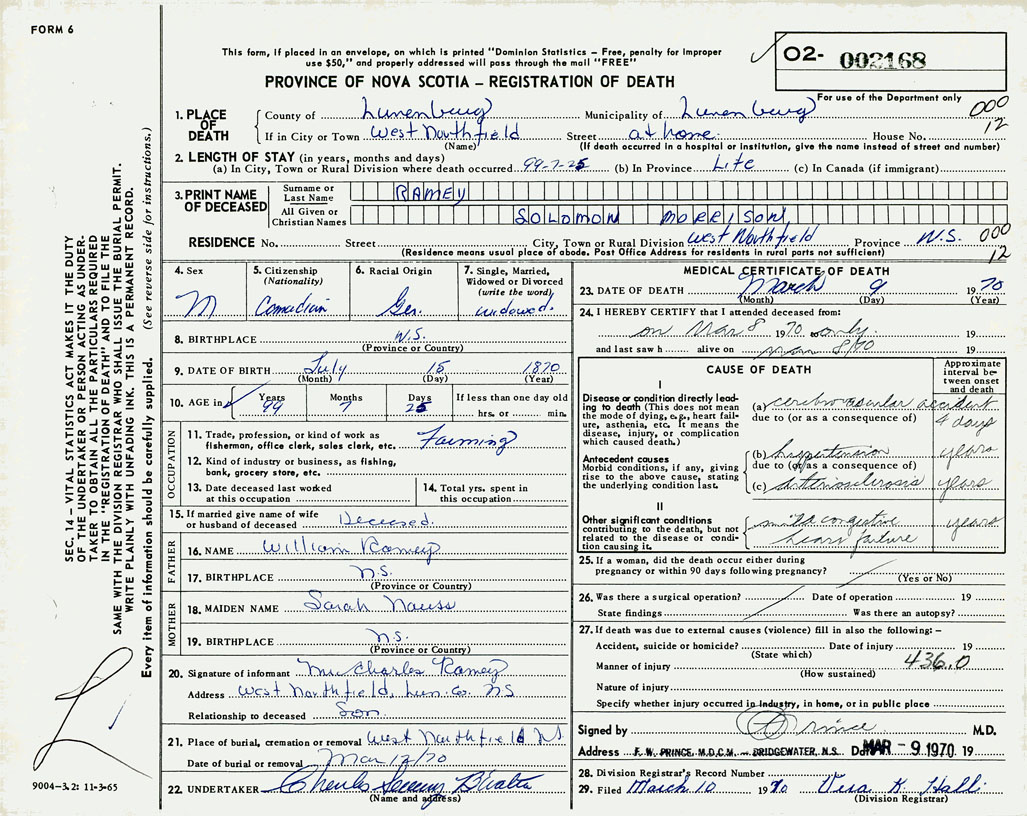 FORM 6
This form, if placed in an envelope, on which is printed "Dominion Statistics – Free, penalty for improper
use $50," and properly addressed will pass through the mail "FREE"
PROVINCE OF NOVA SCOTIA – REGISTRATION OF DEATH
O2- 002168
For use of the Department only
000
12
1. PLACE OF DEATH
County of Lunenburg Municipality of Lunenburg
If in City or Town West Northfield Street at home House No.
(Name) (If death occurred in a hospital or institution, give the name instead of street and number)
2. LENGTH OF STAY (in years, months and days)
(a) In City, Town or Rural Division where death occurred 99-7-25 (b) In Province Life (c) In Canada (if immigrant)
3. PRINT NAME OF DECEASED
Surname or Last Name RAMEY
All Given or Christian Names SOLOMON MORRISON
RESIDENCE No. Street City, Town or Rural Division West Northfield Province N.S. 000
(Residence means usual place of abode. Post Office Address for residents in rural parts not sufficient) 12
4. Sex M
5. Citizenship (Nationality) Canadian
6. Racial Origin Ger.
7. Single, Married, Widowed or Divorced (write the word) widowed.
8. BIRTHPLACE N.S.
(Province or Country)
9. DATE OF BIRTH July 15 1870
(Month) (Day) (Year)
10. AGE in Years 99 Months 7 Days 25 If less than one day old hrs. or min.
OCCUPATION
11. Trade, profession, or kind of work as fisherman, office clerk, sales clerk, etc. Farming
12. Kind of industry or business, as fishing, bank, grocery store, etc.
13. Date deceased last worked at this occupation
14. Total yrs. spent in this occupation
15. If married give name of wife or husband of deceased Deceased.
FATHER
16. NAME William Ramey
17. BIRTHPLACE N.S.
(Province or Country)
MOTHER
18. MAIDEN NAME Sarah Nauss
19. BIRTHPLACE N.S.
(Province or Country)
20. Signature of informant Mr. Charles Ramey
Address West Northfield, Lun. Co. NS
Relationship to deceased Son.
21. Place of burial, cremation or removal West Northfield NS
Date of burial or removal Mar 12/70
22. UNDERTAKER Charles
(Name and address)
MEDICAL CERTIFICATE OF DEATH
23. DATE OF DEATH March 9 1970
(Month) (Day) (Year)
24. I HEREBY CERTIFY that I attended deceased from:
on Mar 8 1970 only. 19
and last saw h alive on Mar 8/70 19
CAUSE OF DEATH
Approximate interval between onset and death
I
Disease or condition directly leading to death (This does not mean the mode of dying, e.g., heart failure, asthenia, etc. It means the disease, injury, or complication which caused death.)
(a) cerebrovascular accident
due to (or as a consequence of) 4 days
Antecedent causes
Morbid conditions, if any, giving rise to the above cause, stating the underlying condition last.
(b) hypertension years
due to (or as a consequence of)
(c) Arteriosclerosis years
II
Other significant conditions contributing to the death, but not related to the disease or condition causing it.
mild congestive years
heart failure
25. If a woman, did the death occur either during
pregnancy or within 90 days following pregnancy?
(Yes or No)
26. Was there a surgical operation? Date of operation 19
State findings Was there an autopsy?
27. If death was due to external causes (violence) fill in also the following: –
Accident, suicide or homicide? Date of injury 19
(State which) 436.0
Manner of injury
(How sustained)
Nature of injury
Specify whether injury occurred in industry, in home, or in public place
Signed by Prince M.D.
Address F. W. PRINCE, M.D.C.M. – BRIDGEWATER, N.S. Date MAR - 9 1970 19
28. Division Registrar's Record Number
29. Filed March 10 1970 Vera K. Hall
(Division Registrar)
SEC. 14 – VITAL STATISTICS ACT MAKES IT THE DUTY
OF THE UNDERTAKER OR PERSON ACTING AS UNDER-
TAKER TO OBTAIN ALL THE PARTICULARS REQUIRED
IN THE "REGISTRATION OF DEATH" AND TO FILE THE
SAME WITH THE DIVISION REGISTRAR WHO SHALL ISSUE THE BURIAL PERMIT.
WRITE PLAINLY WITH UNFADING INK. THIS IS A PERMANENT RECORD.
Every item of information should be carefully supplied. (See reverse side for instructions.)
9004-3.2: 11-3-65